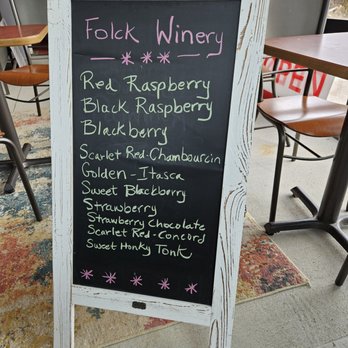 Folck Winery
Red Raspberry
Black Raspberry
Blackberry
Scarlet Red-Chambourcin
Golden-Itasca
Sweet Blackberry
Strawberry
Strawberry Chocolate
Scarlet Red-Concord
Sweet Honky Tonk
OPEN